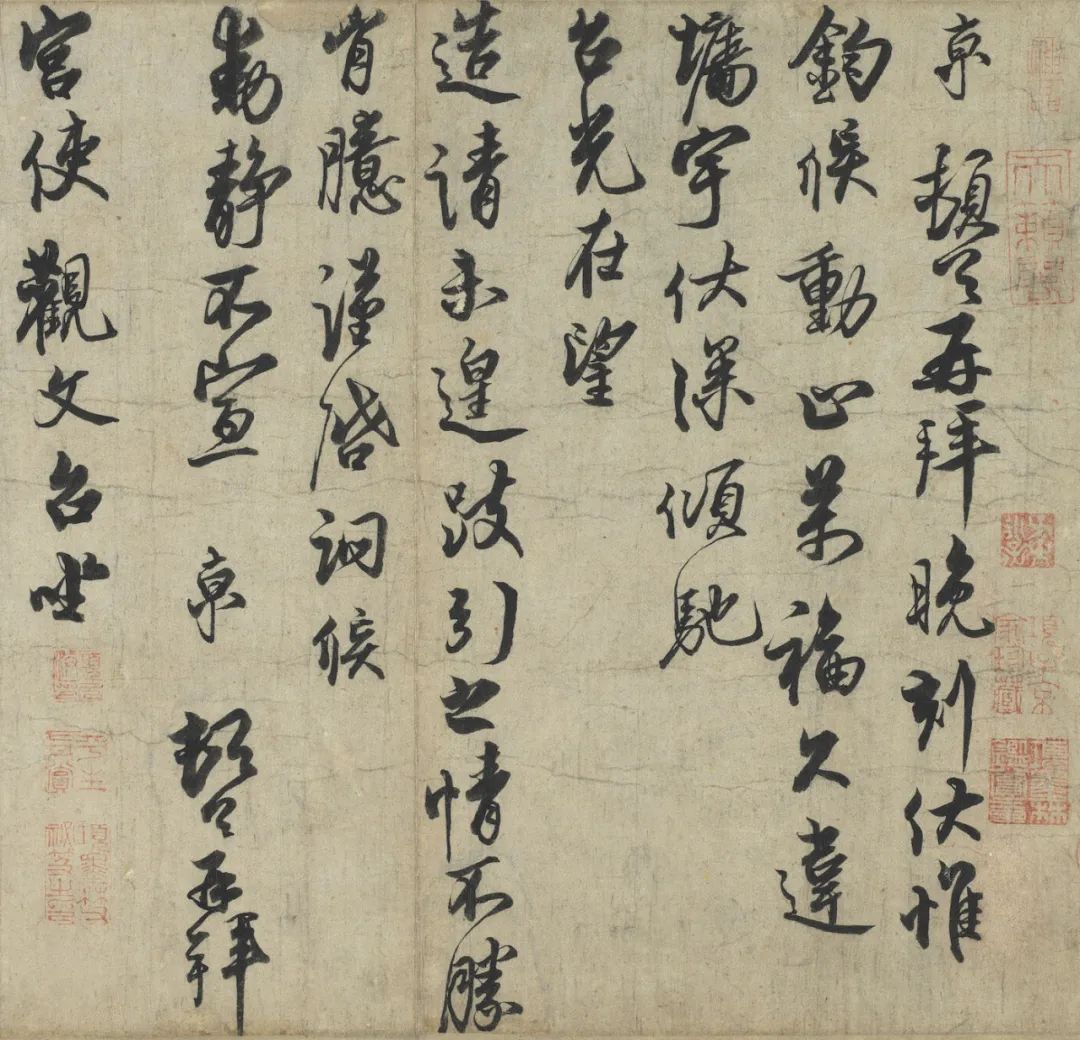 京頓首再拜晚刻伏惟
鈞候動止萬福久違
墉宇伏深傾馳
台光在望
造請未遑跂引之情不勝
胷臆謹啓詗候
動靜不宣京頓首再拜
宮使觀文台坐